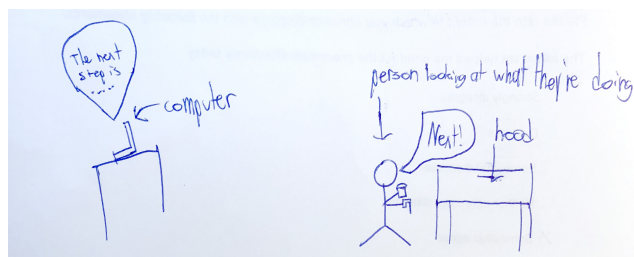 The next
step is
.....
computer
person looking at what they're doing
Next!
hood